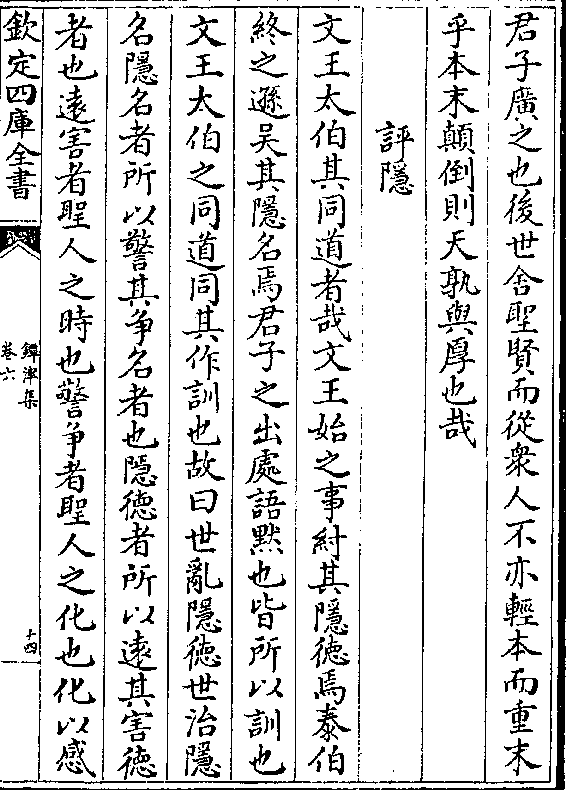 君子廣之也後世舍聖賢而從衆人不亦輕本而重末
乎本末顛倒則天孰與厚也哉
評隱
文王太伯其同道者哉文王始之事紂其隱徳焉泰伯
終之遜吴其隱名焉君子之出處語黙也皆所以訓也
文王太伯之同道同其作訓也故曰世亂隱徳世治隱
名隱名者所以警其争名者也隱徳者所以逺其害徳
者也逺害者聖人之時也警争者聖人之化也化以感
欽定四庫全書
鐔津集
卷六
十四